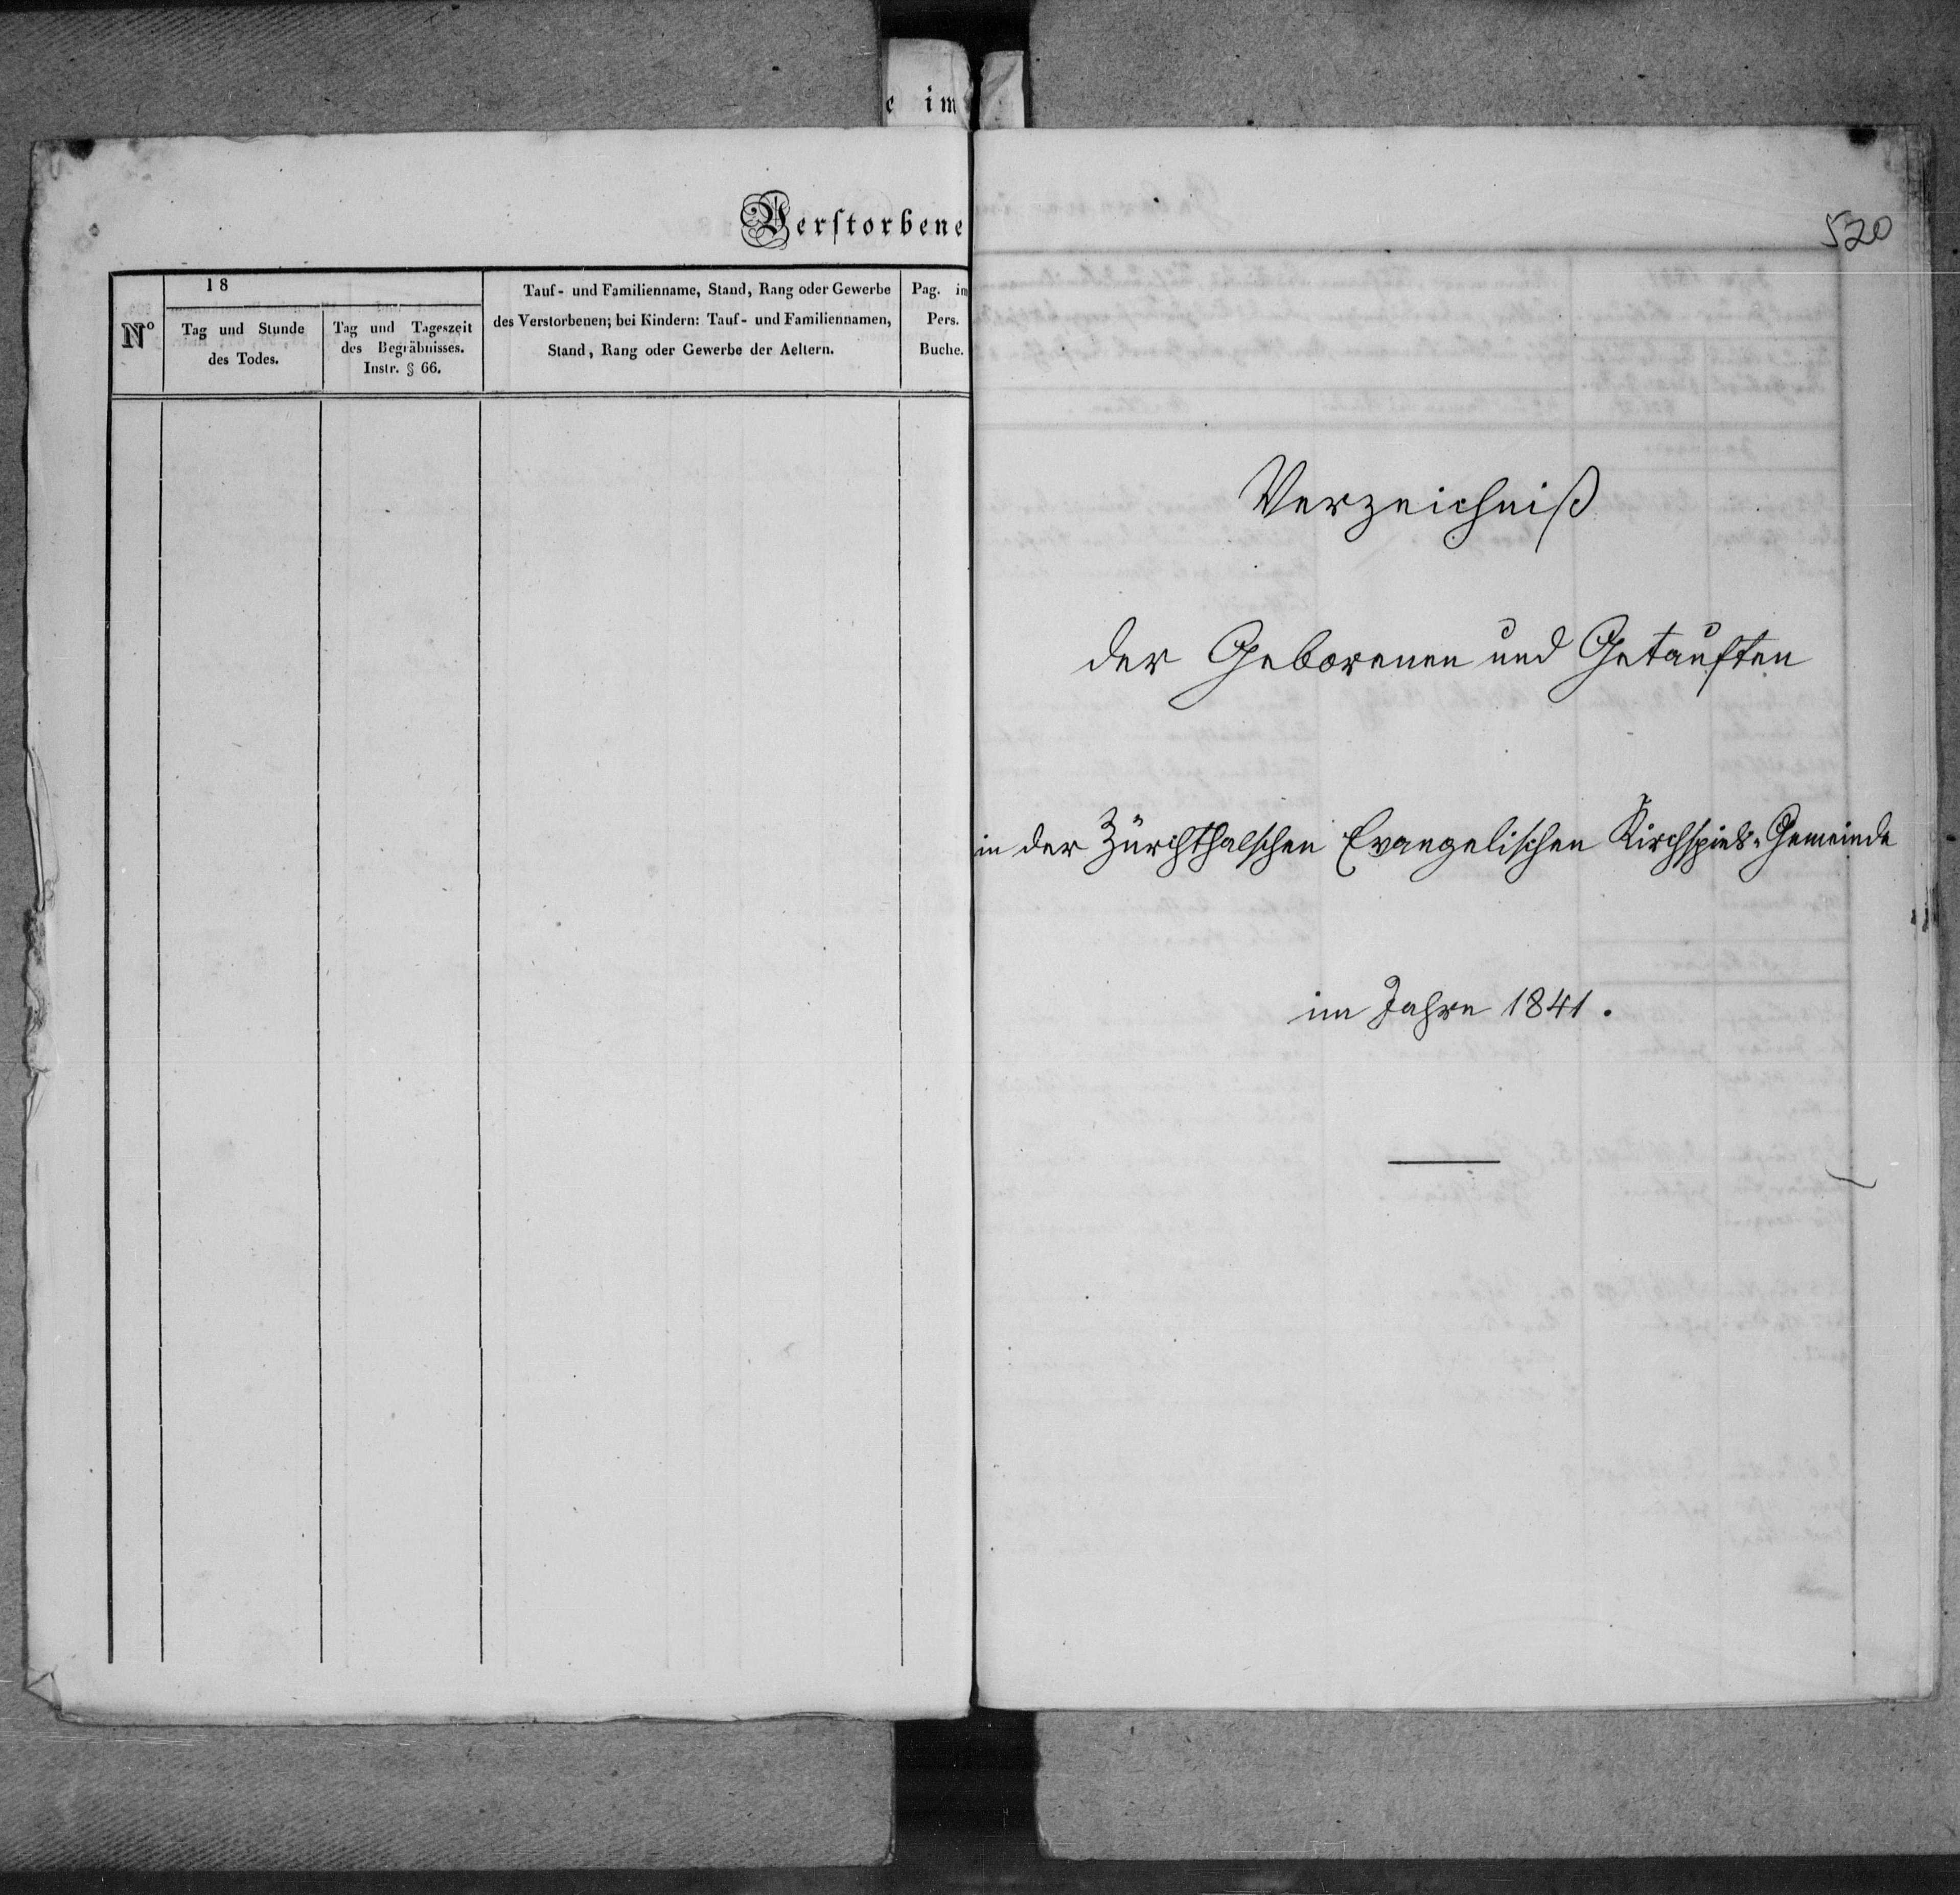 e im
Verstorbene
N°
18
Tag und Stunde
des Todes.
Tag und Tageszeit
des Begräbnisses.
Instr. § 66.
Tauf- und Familienname, Stand, Rang oder Gewerbe
des Verstorbenen; bei Kindern: Tauf- und Familiennamen,
Stand, Rang oder Gewerbe der Aeltern.
Pag. im
Pers.
Buche.
520
Verzeichniß
der Geborenen und Getauften
in der Zürichthalschen Evangelischen Kirchspiels-Gemeinde
im Jahre 1841.